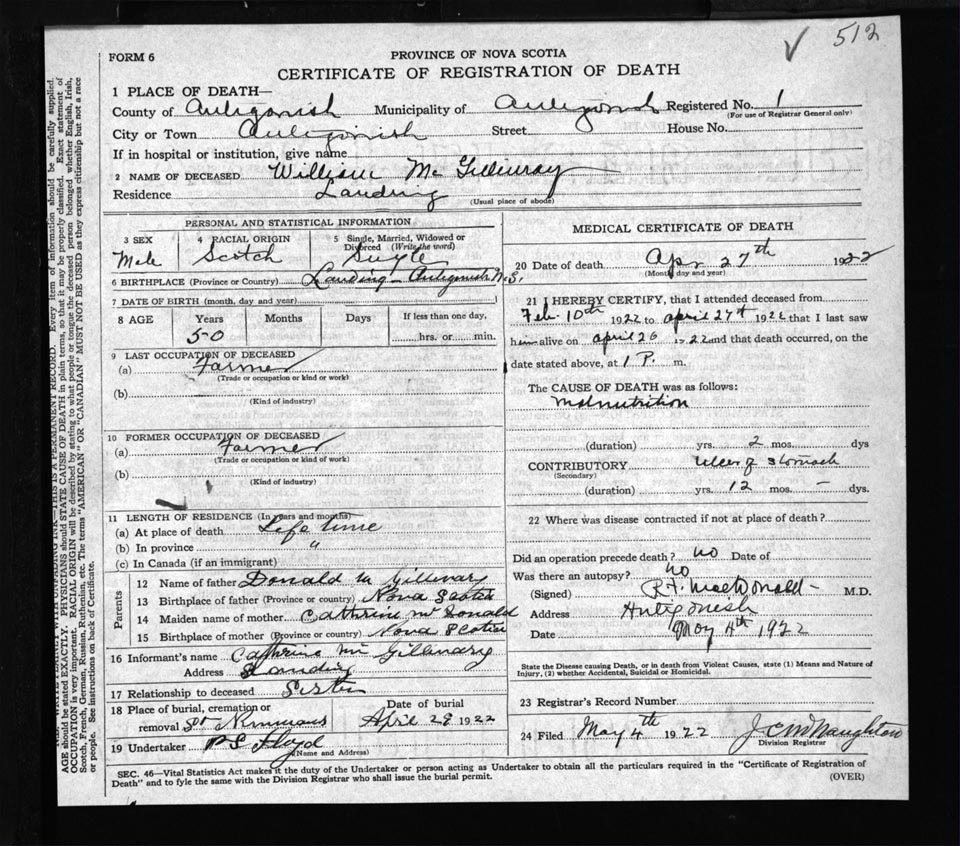 512
FORM 6
PROVINCE OF NOVA SCOTIA
CERTIFICATE OF REGISTRATION OF DEATH
1 PLACE OF DEATH—
County of Antigonish Municipality of Antigonish Registered No. 1
(For use of Registrar General only)
City or Town Antigonish Street House No.
If in hospital or institution, give name
2 NAME OF DECEASED William McGillivray
Residence Landing
(Usual place of abode)
PERSONAL AND STATISTICAL INFORMATION
3 SEX 4 RACIAL ORIGIN 5 Single, Married, Widowed or Divorced (Write the word)
Male Scotch Single
6 BIRTHPLACE (Province or Country) Landing - Antigonish N.S.
7 DATE OF BIRTH (month, day and year)
8 AGE Years Months Days If less than one day,
50 hrs. or min.
9 LAST OCCUPATION OF DECEASED
(a) Farmer
(Trade or occupation or kind or work)
(b)
(Kind of industry)
10 FORMER OCCUPATION OF DECEASED
(a) Farmer
(Trade or occupation or kind or work)
(b)
(Kind of industry)
11 LENGTH OF RESIDENCE (In years and months)
(a) At place of death Life time
(b) In province "
(c) In Canada (if an immigrant)
Parents
12 Name of father Donald McGillivary
13 Birthplace of father (Province or country) Nova Scotia
14 Maiden name of mother Cathrine McDonald
15 Birthplace of mother (Province or country) Nova Scotia
16 Informant's name Cathrine McGillivary
Address Landing
17 Relationship to deceased Sister
18 Place of burial, cremation or Date of burial
removal St Ninnians April 28 1922
19 Undertaker P S Floyd
(Name and Address)
MEDICAL CERTIFICATE OF DEATH
20 Date of death Apr 27th 1922
(Month, day and year)
21 I HEREBY CERTIFY, that I attended deceased from
Feb. 10th 1922 to april 27th 1922 that I last saw
him alive on april 26 1922 and that death occurred, on the
date stated above, at 1 P. m.
The CAUSE OF DEATH was as follows:
Malnutrition
(duration) yrs. 2 mos. dys
CONTRIBUTORY Ulcer of Stomach
(Secondary)
(duration) yrs. 12 mos. - dys.
22 Where was disease contracted if not at place of death?
Did an operation precede death? no Date of
Was there an autopsy? no
(Signed) R.F. MacDonald - M.D.
Address Antigonish
Date May 4th 1922
State the Disease causing Death, or in death from Violent Causes, state (1) Means and Nature of
Injury, (2) whether Accidental, Suicidal or Homicidal.
23 Registrar's Record Number
24 Filed May 4th 1922 J C McNaughton
Division Registrar
SEC. 46—Vital Statistics Act makes it the duty of the Undertaker or person acting as Undertaker to obtain all the particulars required in the "Certificate of Registration of
Death" and to fyle the same with the Division Registrar who shall issue the burial permit.
(OVER)
WRITE PLAINLY WITH UNFADING INK—THIS IS A PERMANENT RECORD. Every item of information should be carefully supplied.
AGE should be stated EXACTLY. PHYSICIANS should STATE CAUSE OF DEATH in plain terms, so that it may be properly classified. Exact statement of
OCCUPATION is very important. RACIAL ORIGIN will be described by stating to what people or tongue the deceased person belonged whether English, Irish,
Scotch, French, German, Russian, Ruthenian, etc. The terms "AMERICAN" or "CANADIAN" MUST NOT BE USED as they express citizenship but not a race
or people. See instructions on back of Certificate.